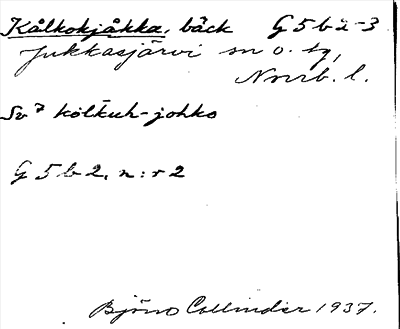 Kålkokjåkka, bäck G5b2-3
Jukkasjärvi sn o. tg,
Norrb. l.
kolkuh-johko
G5b2, n:r 2
Björn Collinder 1937.